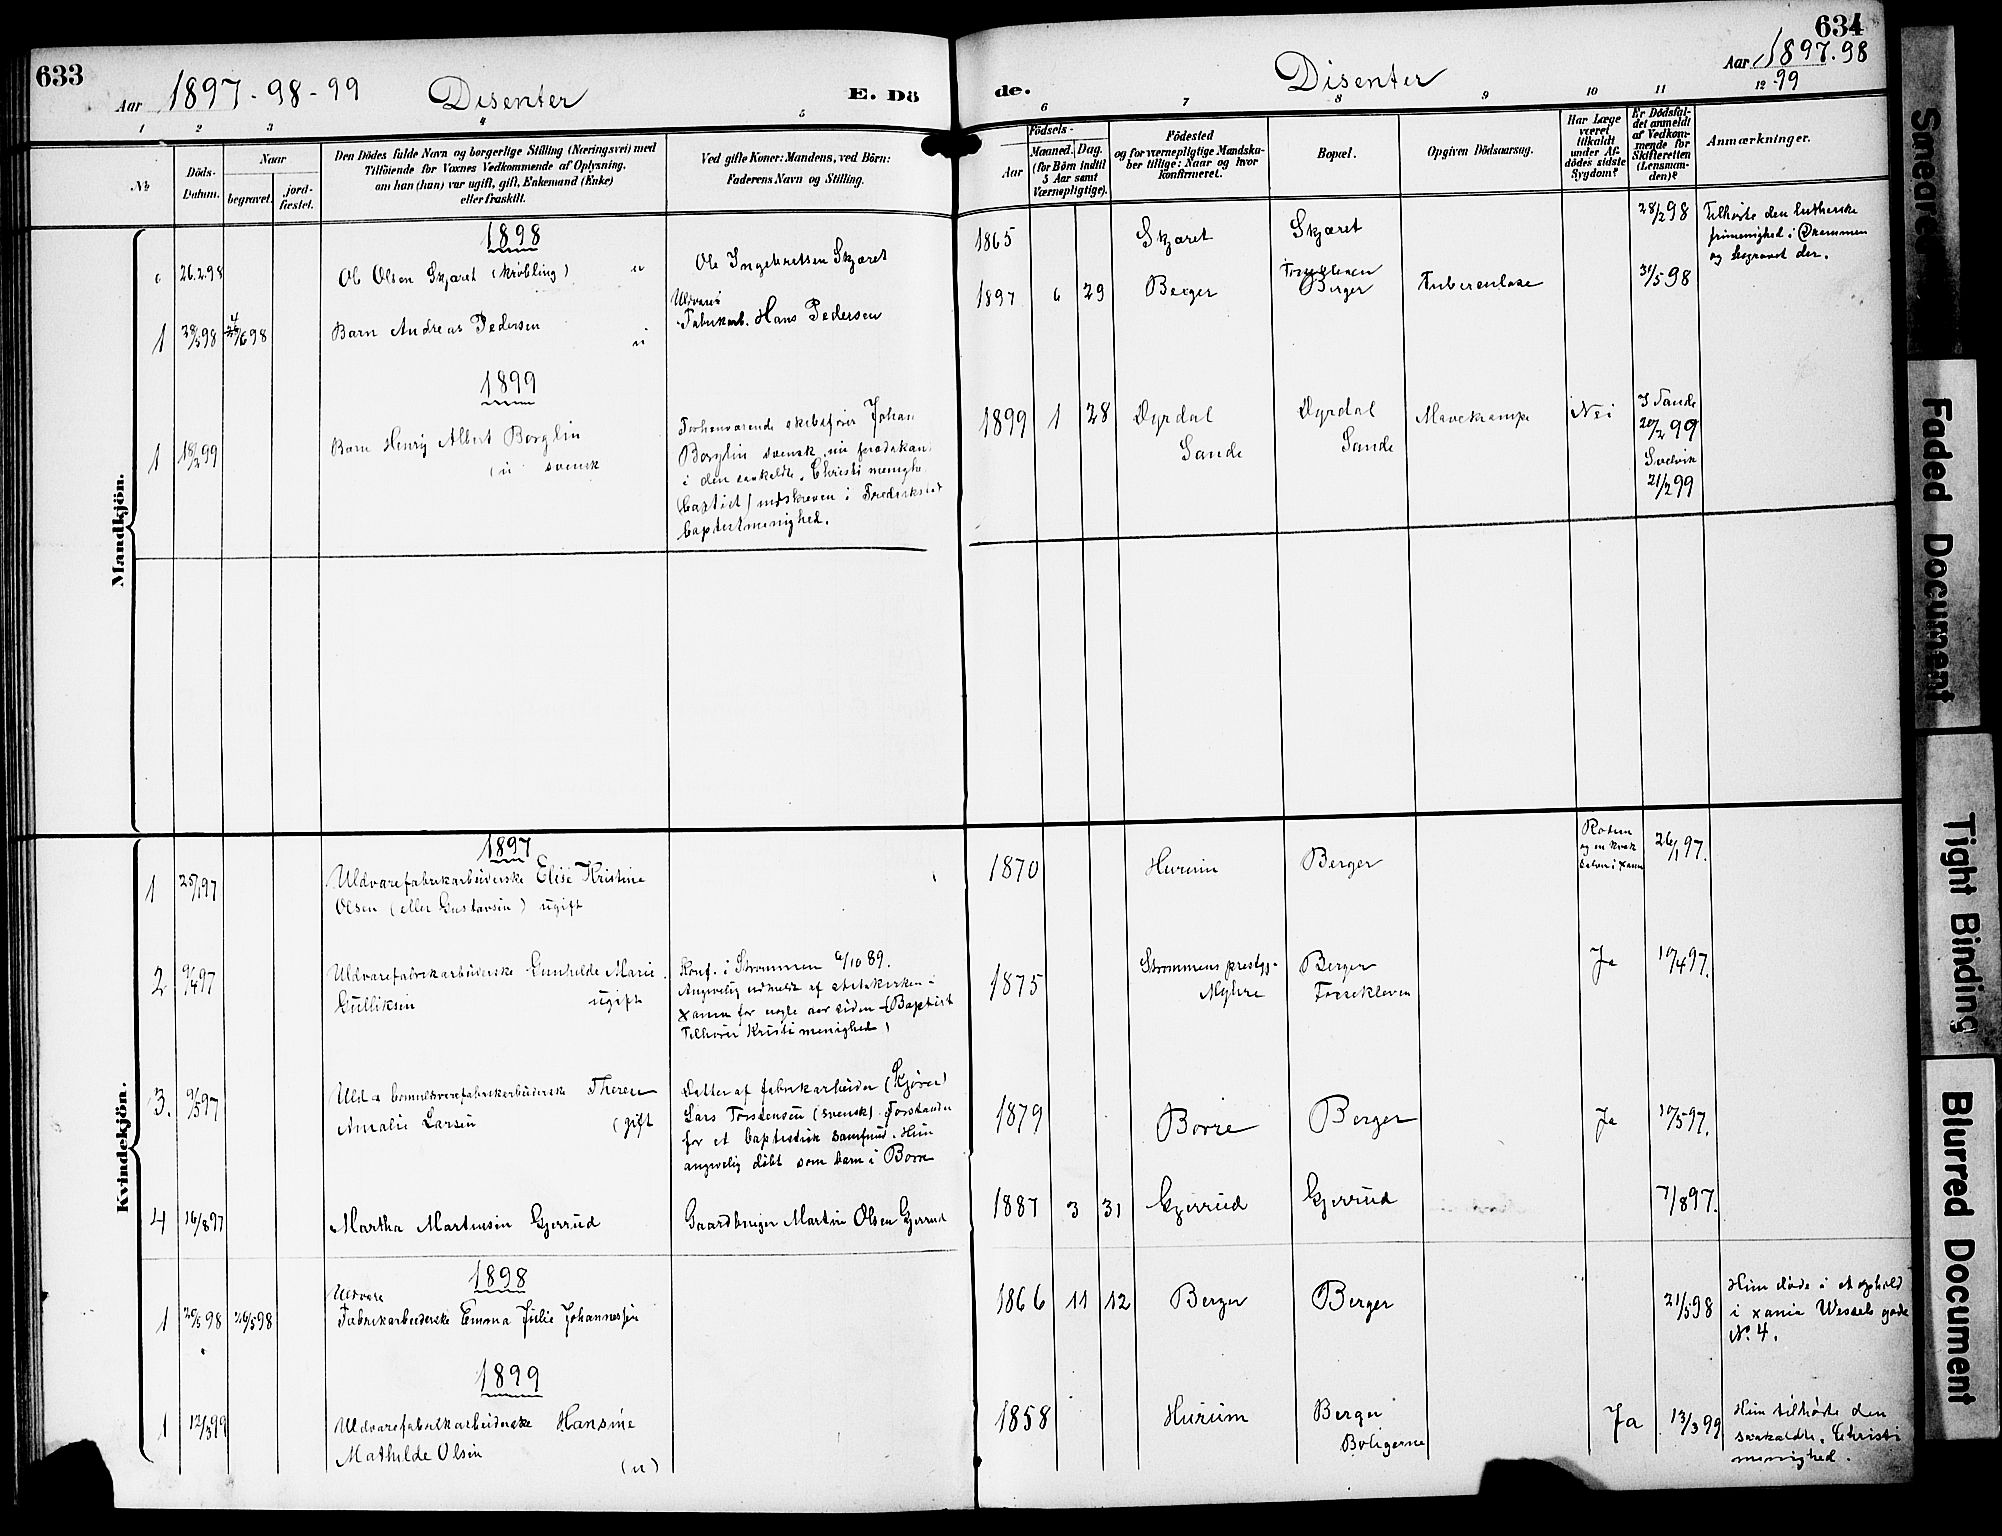 633
Aar 1897-98-99 Disenter E. Dö
1 2 3 4 5
No
Döds-
Datum.
Naar
begravet.
jord-
fæstet.
Den Dödes fulde Navn og borgerlige Stilling (Næringsvei) med
Tilföiende for Voxnes Vedkommende af Oplysning,
om han (hun) var ugift, gift, Enkemand (Enke)
eller fraskilt.
Ved gifte Koner: Mandens, ved Börn:
Faderens Navn og Stilling.
Mandkjön.
1898
26.2.98 Ole Olsen Skjæret (Krøbling) u Ole Ingebretsen Skjæret
1 28/5 98 4/6 98 Barn Andreas Pedersen u
Uldvare
Fabrikarb. Hans Pedersen
1899
1 18/2 99 Barn Henry Albert Borglin
(u svensk
Forhenværende skibsfører Johan
Borglin svensk nu prædikant
i den saakaldte Christi menighed
(baptist) indskreven i Fredrikstad
baptistmenighed.
Kvindekjön.
1897
1 25/1 97 Uldvarefabrikarbeiderske Elise Kristine
Olsen (eller Gustavsen) ugift
2 9/4 97 Uldvarefabrikarbeiderske Gunhilde Marie
Gulliksen ugift
Konf. i Strømmen 6/10 89.
Angivelig udmeldt af statskirken i
Xania for nogle aar siden (Baptist
Tilhører Kristi menighed)
3. 9/5 97 Uld & bomuldsvarefabrikarbeiderske Therese
Amalie Larsen (gift
Datter af fabrikarbeider (Kjører)
Lars Torstensen (svensk) Forstander
for et baptistisk samfund. Hun
angivelig døbt som barn i Borre
4 16/8 97 Martha Martinsen Gjerrud Gaardbruger Martin Olsen Gjerrud
1898
Uldvare
1 20/5 98 26/5 98 Fabrikarbeiderske Emma Julie Johannessen
1899
1 12/3 99 Uldvarefabrikarbeiderske Hansine
Mathilde Olsen
(u)
634
de. Disenter Aar 1897.98
-99
6 7 8 9 10 11 12
Födsels-
Aar
Maaned. Dag.
(for Börn indtil
5 Aar samt
Værnepligtige).
Födested
og for værnepligtige Mandska-
ber tillige: Naar og hvor
Konfirmeret.
Bopæl.
Opgiven Dödsaarsag.
Har Læge
været
tilkaldt
under Af-
dödes sidste
Sygdom?
Er Dödsfal-
det anmeldt
af Vedkom-
mende for
Skifteretten
(Lensman-
den)?
Anmærkninger.
1865 Skjæret Skjæret 28/2 98
Tilhørte den lutherske
frimenighed i Drammen
og begravet der.
1897 6 29 Berger Fossekleven
Berger Tuberculose 31/5 98
1899 1 28 Dyrdal
Sande
Dyrdal
Sande
Mavekrampe Nei
I Sande
20/2 99
Svelvik
21/2 99
1870 Hurum Berger 26/1 97.
1875 Strømmens prestgj.
Myhre
Berger
Fossekleven
Ja 10/4 97.
1879 Borre Berger Ja 10/5 97.
1887 3 31 Gjerrud Gjerrud 7/8 97.
1866 11 12 Berger Berger 21/5 98
Hun døde i et ophold
i Xania Wessels gade
No. 4.
1858 Hurum Berger
Boligerne
Ja 13/3 99
Hun tilhørte den
saakaldte Christi
menighed.
Smeared
Faded Document
Tight Binding
Blurred Document